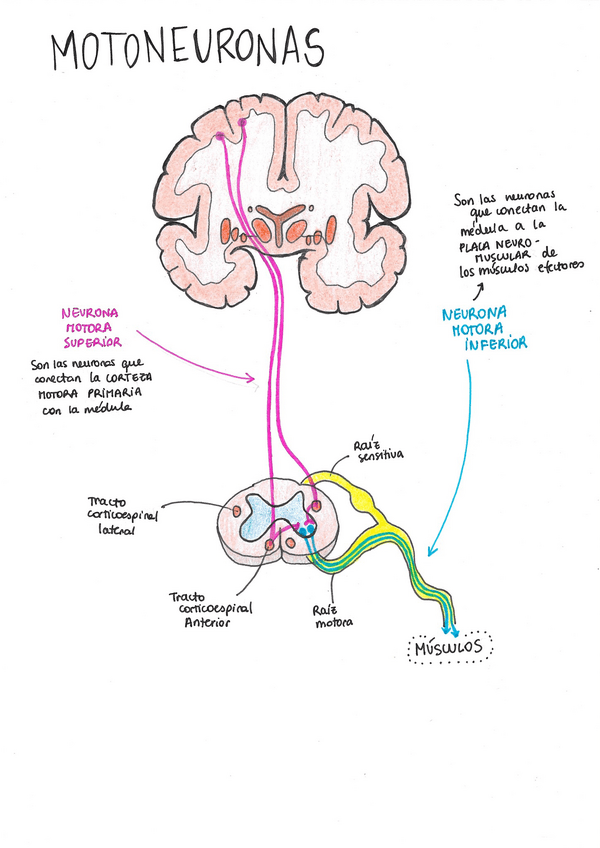 MOTONEURONAS
Son las neuronas
que conectan la
médula a la
PLACA NEURO-
MUSCULAR de
los músculos efectores
NEURONA
MOTORA
INFERIOR
NEURONA
MOTORA
SUPERIOR
Son las neuronas que
conectan la CORTEZA
MOTORA PRIMARIA
con la médula
Raíz
sensitiva
Tracto
corticoespinal
lateral
Tracto
corticoespinal
Anterior
Raíz
motora
MÚSCULOS